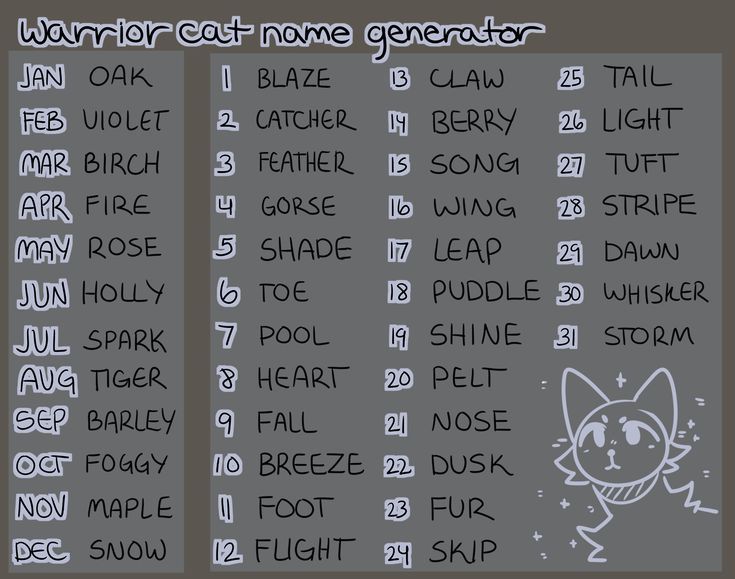 warrior cat name generator
JAN OAK
FEB VIOLET
MAR BIRCH
APR FIRE
MAY ROSE
JUN HOLLY
JUL SPARK
AUG TIGER
SEP BARLEY
OCT FOGGY
NOV MAPLE
DEC SNOW
1 BLAZE
2 CATCHER
3 FEATHER
4 GORSE
5 SHADE
6 TOE
7 POOL
8 HEART
9 FALL
10 BREEZE
11 FOOT
12 FLIGHT
13 CLAW
14 BERRY
15 SONG
16 WING
17 LEAP
18 PUDDLE
19 SHINE
20 PELT
21 NOSE
22 DUSK
23 FUR
24 SKIP
25 TAIL
26 LIGHT
27 TUFT
28 STRIPE
29 DAWN
30 WHISKER
31 STORM